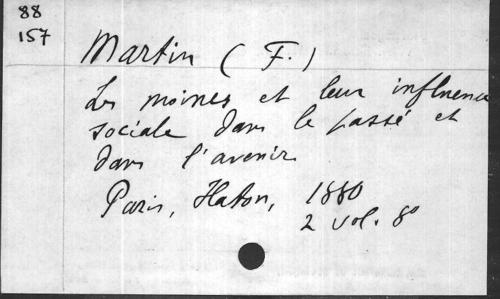 88
157
Martin (F.)
Les moines et leur influence
sociale dans le passé et
dans l'avenir
Paris, Haton, 1880
2 vol. 8°